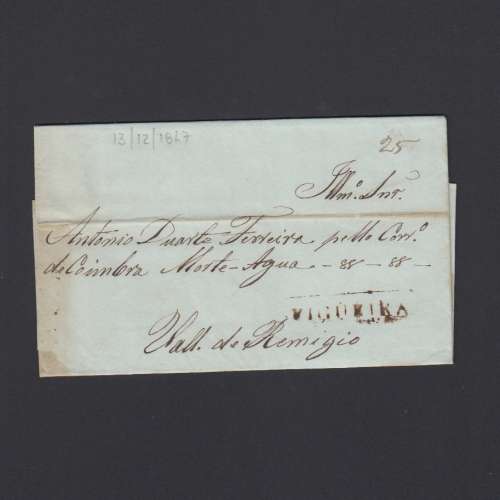 13/12/1847
25
Illmo. Snr.
Antonio Duarte Ferreira pello Corro.
de Coimbra Morte-Agua
VIGOEIRA
Vall. de Remigio